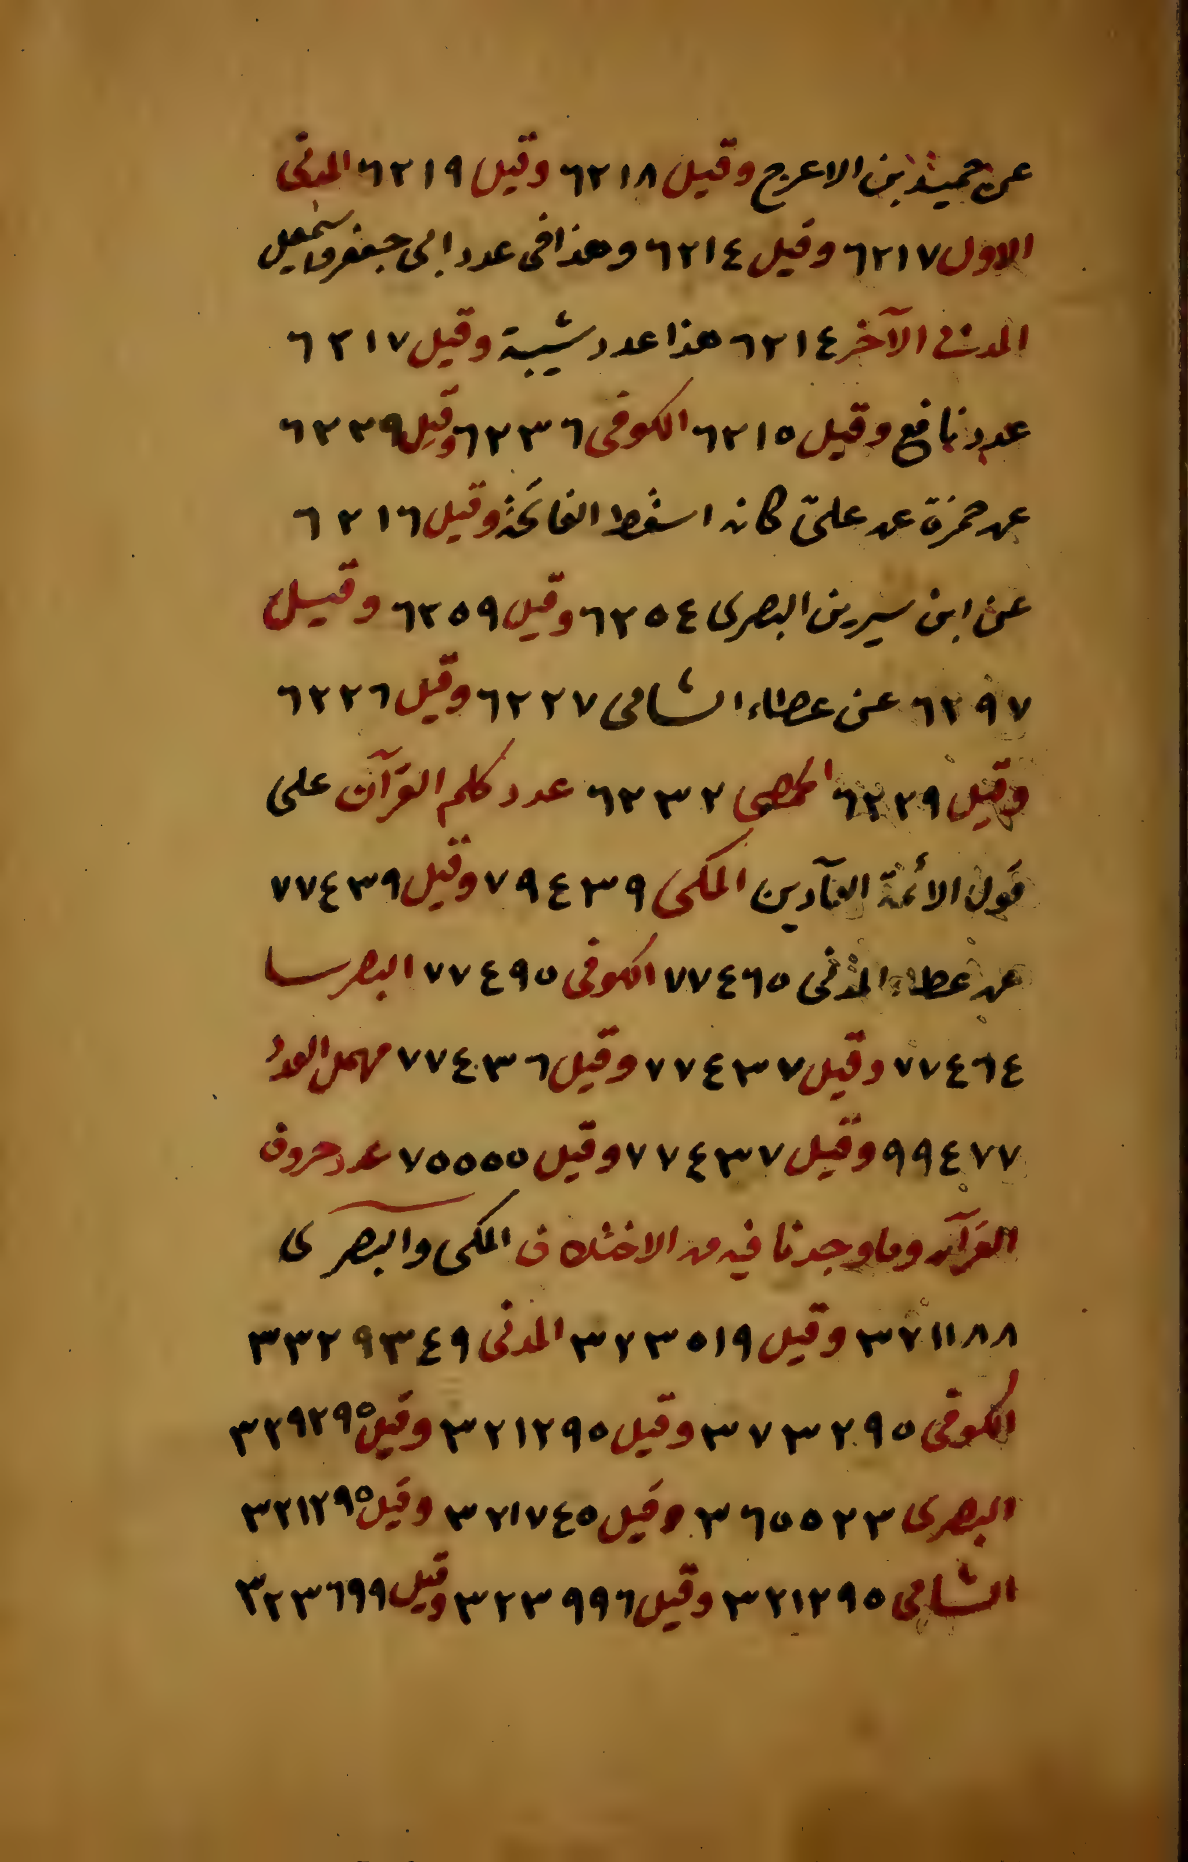 عن حميد بن الاعرج وقيل ٦٢١٨ وقيل ٦٢١٩ المدنى
الاول ٦٢١٧ وقيل ٦٢١٤ وهذا فى عدد ابى جعفر واسمعيل
المدنى الآخر ٦٢١٤ هذا عدد شيبة وقيل ٦٢١٧
عدد نافع وقيل ٦٢١٥ الكوفى ٦٢٣٦ وقيل ٦٢٣٩
عن حمزة عن علىّ كانه اسقط الفاتحة وقيل ٦٢١٦
عن ابن سيرين البصرى ٦٢٥٤ وقيل ٦٢٥٩ وقيل
٦٢٩٧ عن عطاء الشامى ٦٢٢٧ وقيل ٦٢٢٦
وقيل ٦٢٢٩ الحمصى ٦٢٣٢ عدد كلم القرآن على
قول الائمة العآدين المكى ٧٩٤٣٩ وقيل ٧٧٤٣٩
عن عطاء المدنى ٧٧٤٦٥ الكوفى ٧٧٤٩٥ البصر
٧٧٤٦٤ وقيل ٧٧٤٣٧ وقيل ٧٧٤٣٦ مهمل العدد
٩٩٤٧٧ وقيل ٧٧٤٣٧ وقيل ٧٥٥٥٥ عدد حروف
القرآن وما وجدنا فيه من الاختلاف المكى والبصرى
٣٢١١٨٨ وقيل ٣٢٣٥١٩ المدنى ٣٣٢٩٣٤٩
الكوفى ٣٧٣٢٩٥ وقيل ٣٢١٢٩٥ وقيل ٣٢٩٢٩٥
البصرى ٣٦٥٥٢٣ وقيل ٣٢١٧٤٥ وقيل ٣٢١٢٩٥
الشامى ٣٢١٢٩٥ وقيل ٣٢٣٩٩٦ وقيل ٣٢٣٦٩٩